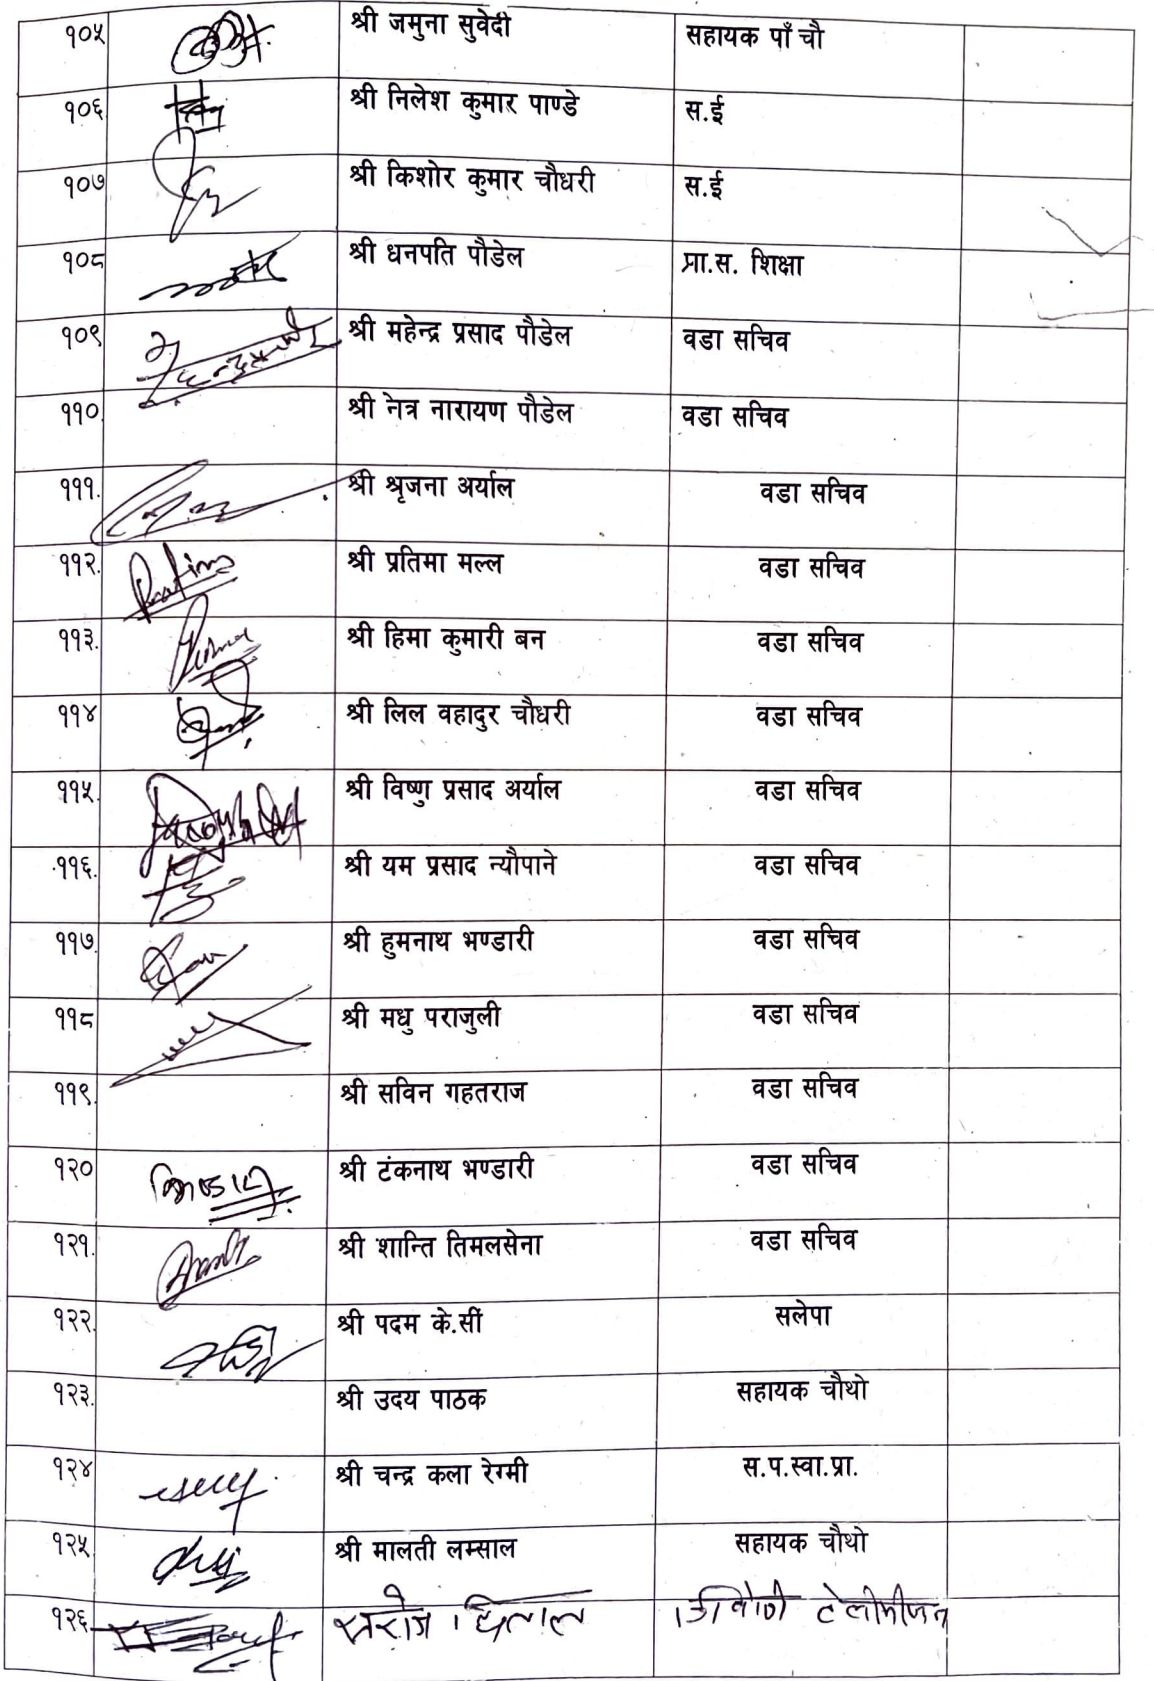 १०५ श्री जमुना सुवेदी सहायक पाँ चौ
१०६ श्री निलेश कुमार पाण्डे स.ई
१०७ श्री किशोर कुमार चौधरी स.ई
१०८ श्री धनपति पौडेल प्रा.स. शिक्षा
१०९ श्री महेन्द्र प्रसाद पौडेल वडा सचिव
११०. श्री नेत्र नारायण पौडेल वडा सचिव
१११. श्री श्रृजना अर्याल वडा सचिव
११२. Pratima श्री प्रतिमा मल्ल वडा सचिव
११३. श्री हिमा कुमारी बन वडा सचिव
११४ श्री लिल वहादुर चौधरी वडा सचिव
११५. श्री विष्णु प्रसाद अर्याल वडा सचिव
११६. श्री यम प्रसाद न्यौपाने वडा सचिव
११७. श्री हुमनाथ भण्डारी वडा सचिव
११८ श्री मधु पराजुली वडा सचिव
११९. श्री सविन गहतराज वडा सचिव
१२० श्री टंकनाथ भण्डारी वडा सचिव
१२१. श्री शान्ति तिमलसेना वडा सचिव
१२२. श्री पदम के.सीं सलेपा
१२३. श्री उदय पाठक सहायक चौथो
१२४ श्री चन्द्र कला रेग्मी स.प.स्वा.प्रा.
१२५ श्री मालती लम्साल सहायक चौथो
१२६. सरोज धिताल टेलीभीजन